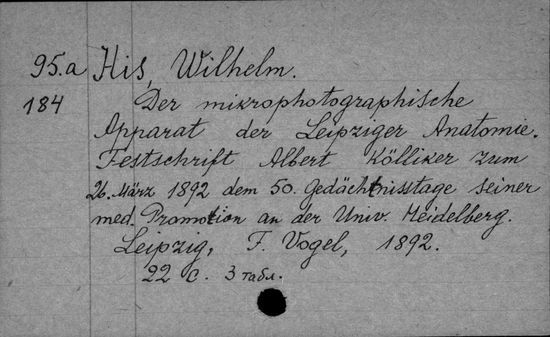 95.a His, Wilhelm.
184 Der mikrophotographische
Apparat der Leipziger Anatomie.
Festschrift Albert Kölliker zum
26. März 1892 dem 50. Gedächtnisstage seiner
med. Promotion an der Univ. Heidelberg.
Leipzig, F. Vogel, 1892.
22 с. 3 табл.